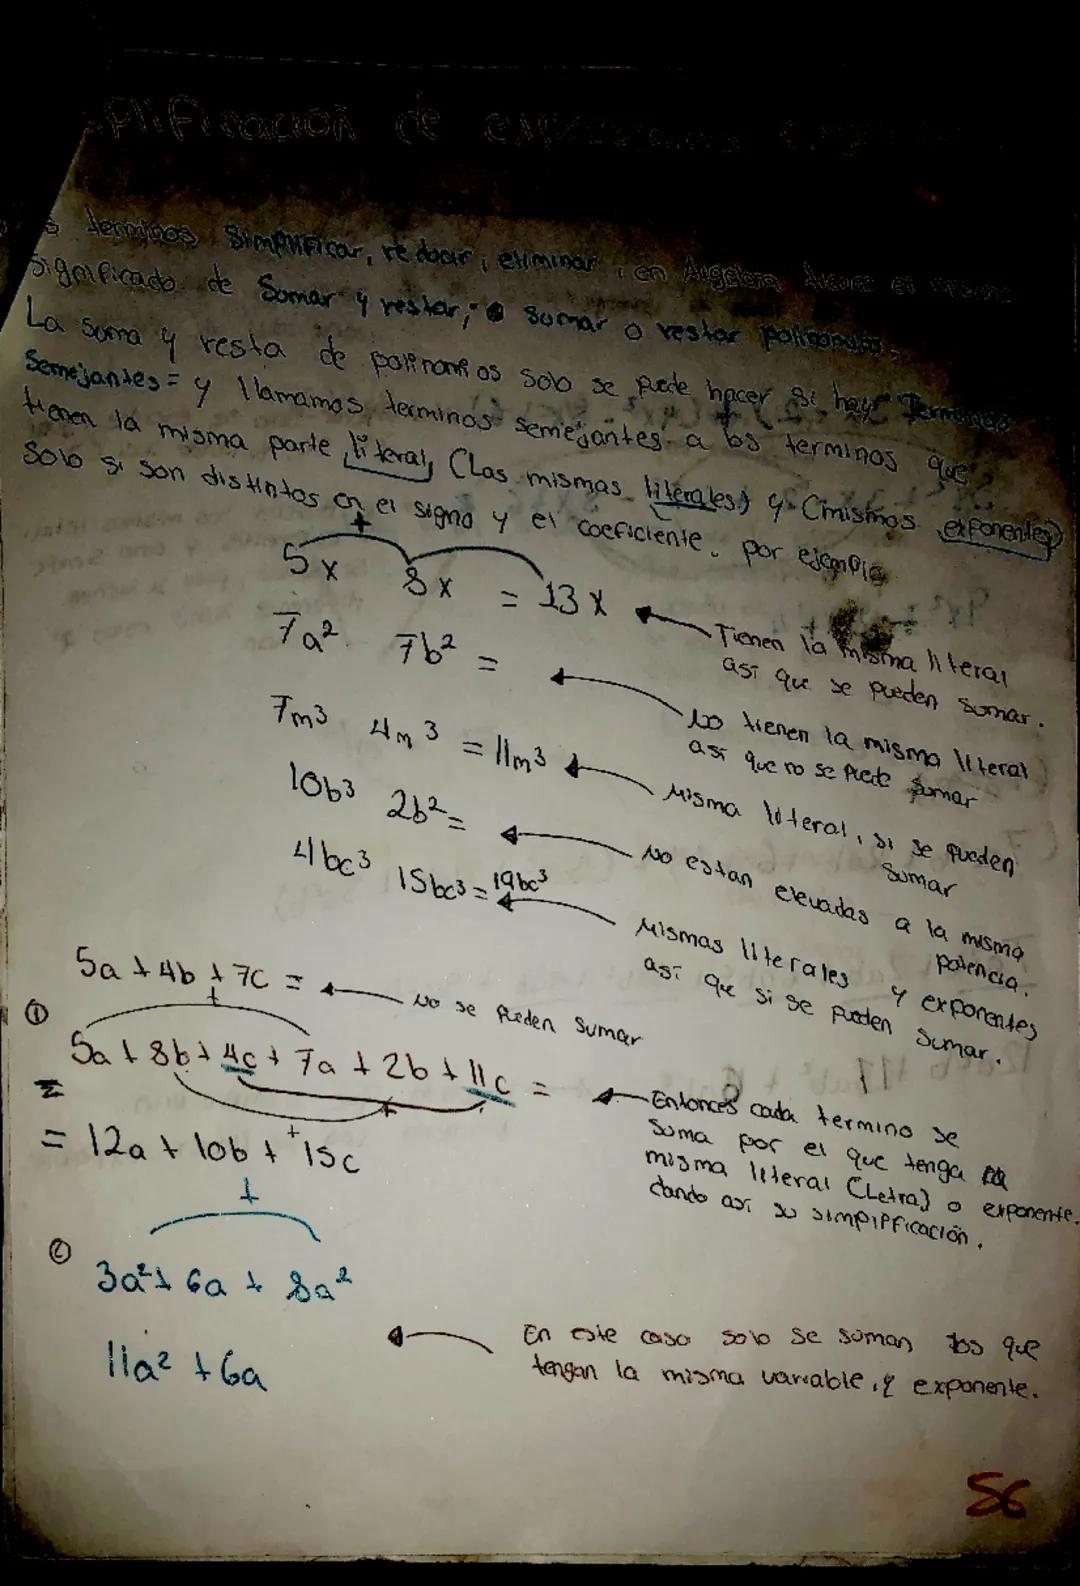 plificación de
terminos Simplificar, reducir, eliminar, en Algebra
Significado de Sumar y restar, Sumar o restar polinomios.
La suma y resta de polinomios solo se puede hacer si hay Terminos
Semejantes = y llamamos terminos semejantes a los terminos que
tienen la misma parte literal, (Las mismas literales) y (mismos exponentes)
Solo si son distintos en el signo y el coeficiente. por ejemplo
+
5x 8x = 13x
Tienen la misma literal
asi que se pueden sumar.
7a² 7b² =
No tienen la misma literal
asi que no se puede sumar
7m³ 4m³ = 11m³
Misma literal, si se pueden
sumar
10b³ 2b² =
No estan elevadas a la misma
potencia.
4bc³ 15bc³ = 19bc³
Mismas literales y exponentes
asi que si se pueden sumar.
5a + 4b + 7c =
No se pueden sumar
①
+
5a + 8b + 4c + 7a + 2b + 11c =
+
+
= 12a + 10b + 15c
Entonces cada termino se
suma por el que tenga
misma literal (Letra) o exponente.
dando asi su simpipficación.
②
+
3a² + 6a + 8a²
11a² + 6a
En este caso solo se suman los que
tengan la misma variable, y exponente.
56